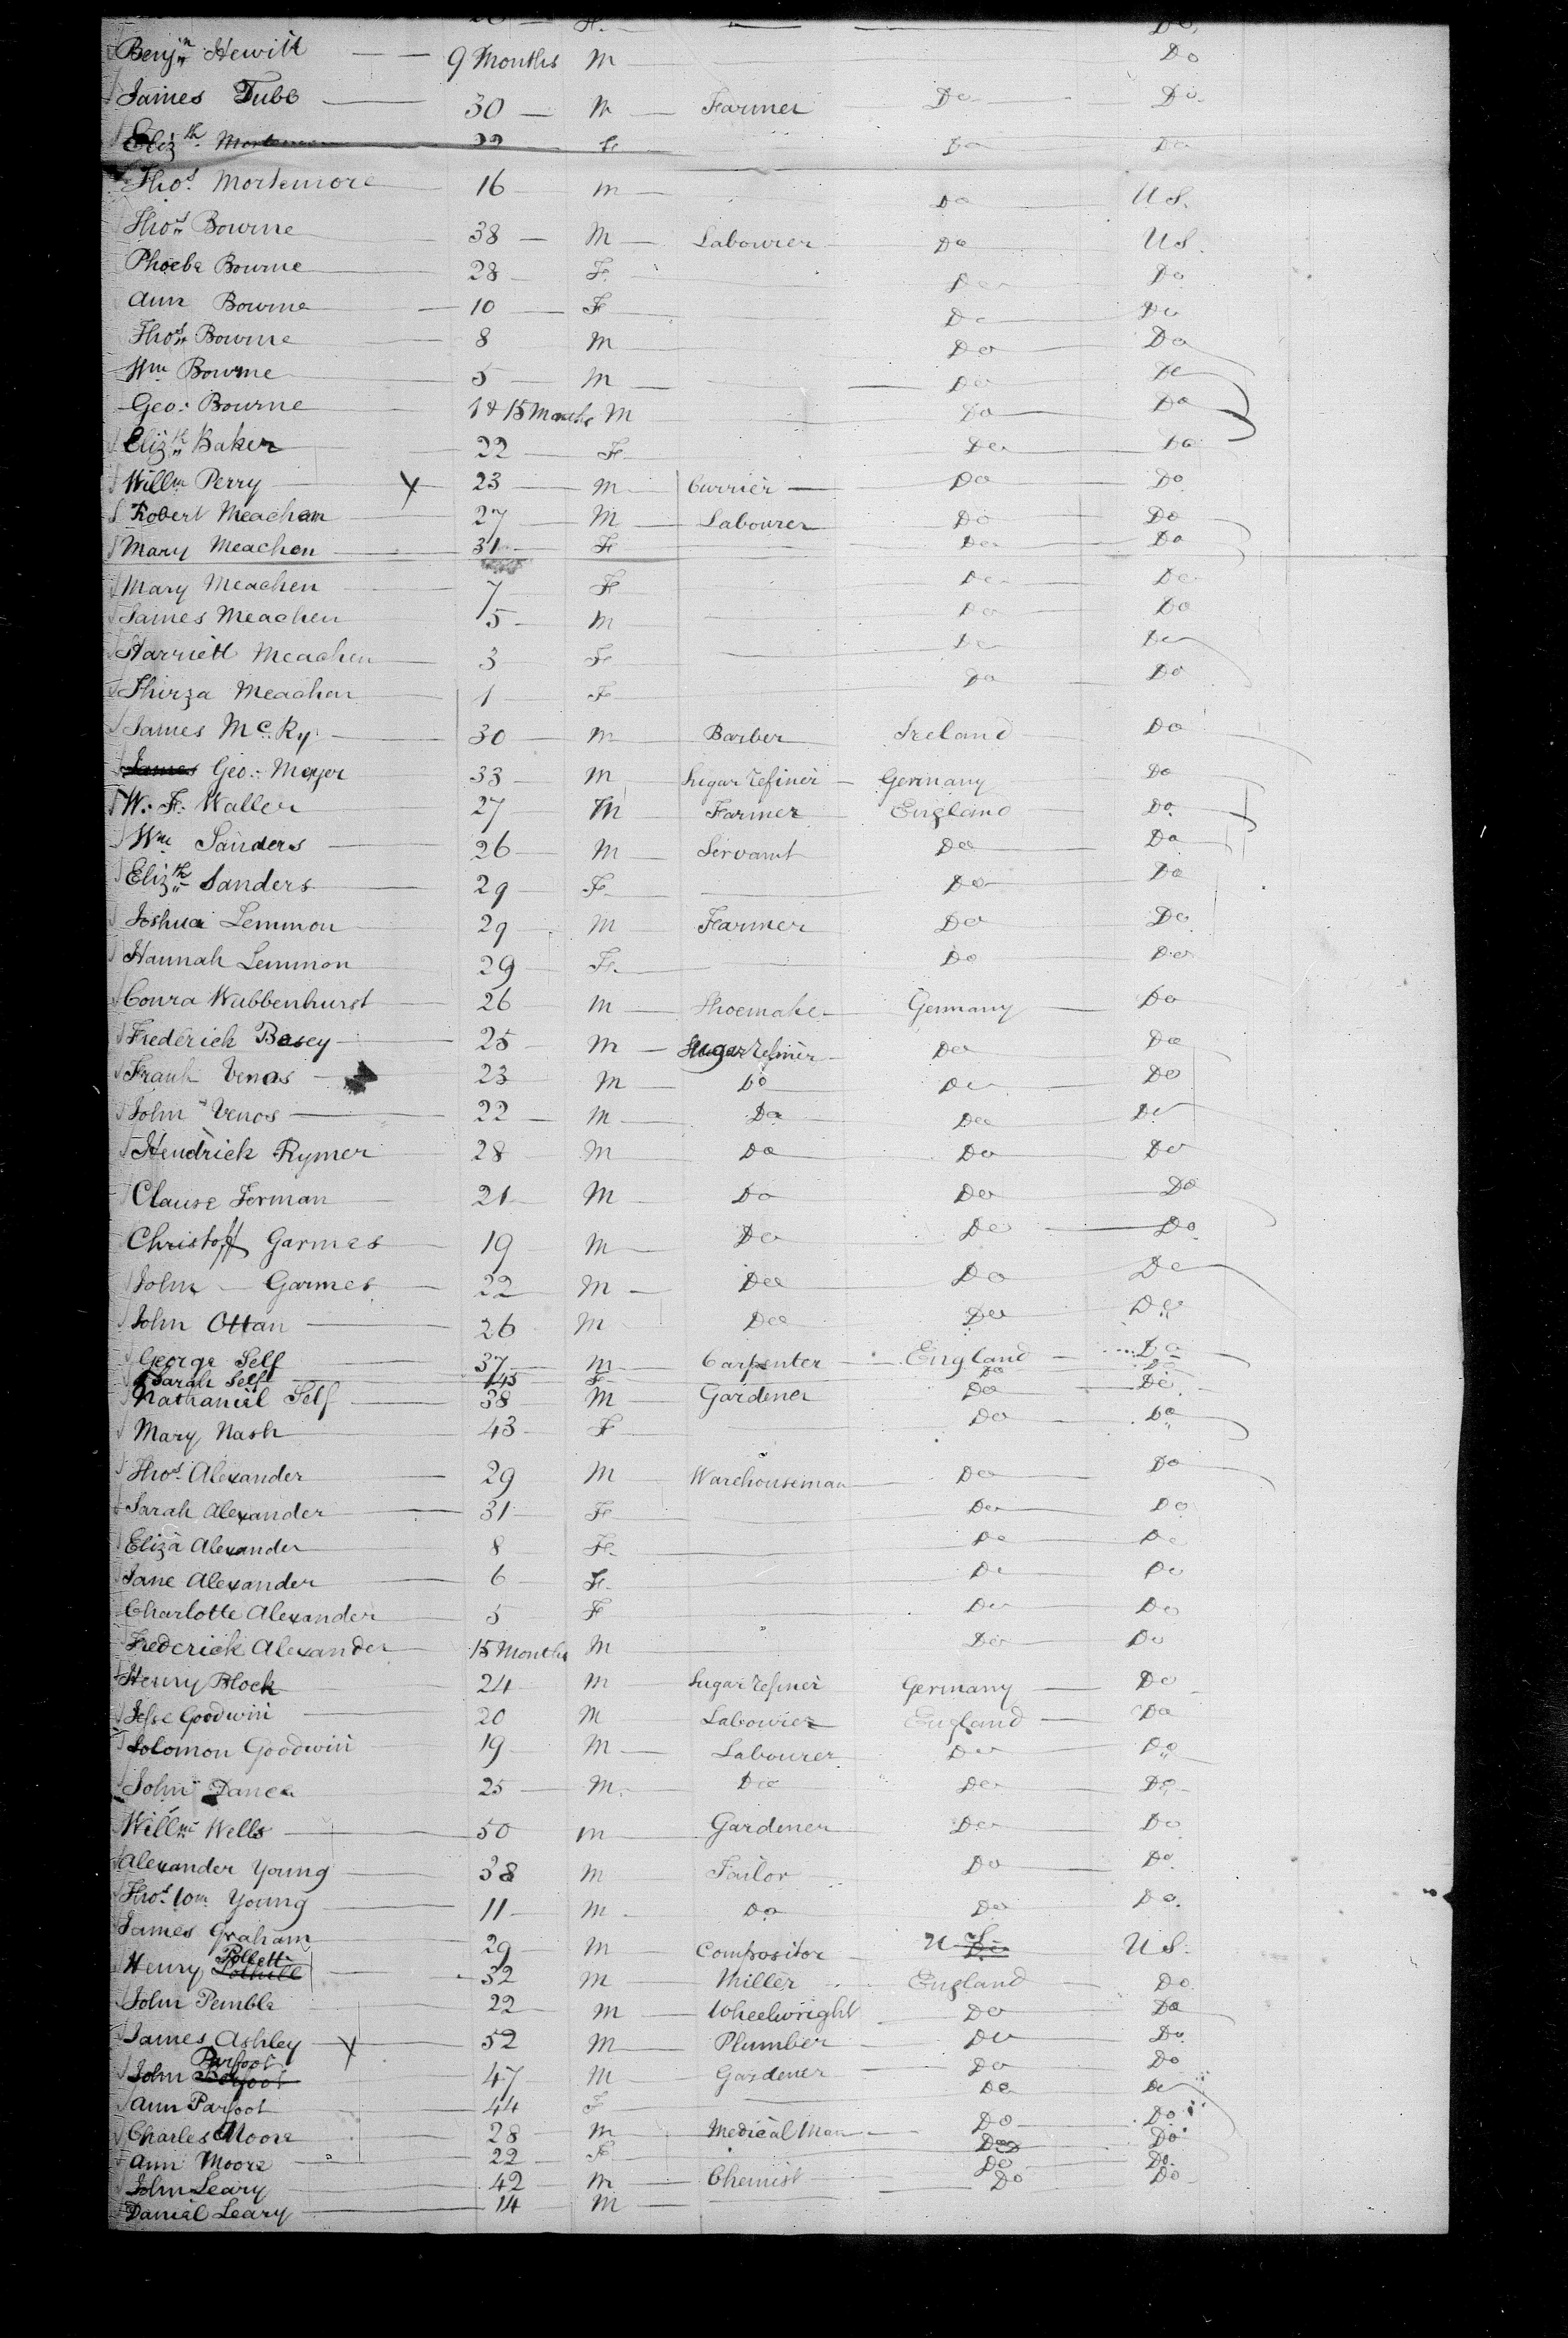 F. Do.
Benjn Hewitt 9 Months M Do
James Tubb 30 M Farmer Do Do.
Elizth 22 F Do Do
Thos. Mortemore 16 M Do U S.
Thos Bourne 38 M Labourer Do U S.
Phoebe Bourne 28 F. Do Do
Ann Bourne 10 F Do Do
Thos Bourne 8 M Do Do
Wm Bourne 5 M Do Do
Geo: Bourne 15 Months M Do Do
Elizth Baker 22 F Do Do
Willm Perry X 23 M Currier Do Do
Robert Meachen 27 M Labourer Do Do
Mary Meachen 31 F Do Do
Mary Meachen 7 F Do Do
James Meachen 5 M Do Do
Harriett Meachen 3 F Do Do
Thirza Meachen 1 F Do Do
James McKy 30 M Barber Ireland Do
James Geo: Meyer 33 M Sugar refiner Germany Do
W. F. Waller 27 M Farmer England Do.
Wm Sanders 26 M Servant Do Do
Elizth Sanders 29 F Do Do
Joshua Lemmon 29 M Farmer Do Do
Hannah Lemmon 29 F. Do Do
Conra Wubbenhurst 26 M Shoemake Germany Do
Frederick Basey 25 M Sugar refiner Do Do
Frank Venos 23 M Do Do Do
John Venos 22 M Do Do Do
Hendrick Rymer 28 M Do Do Do
Clause Forman 21 M Do Do Do
Christoff Garmes 19 M Do Do Do.
John Garmes 22 M Do Do Do
John Ottan 26 M Do Do Do
George Self 37 M Carpenter England Do
Sarah Self 45 F Do Do
Nathaniel Self 38 M Gardener Do Do.
Mary Nash 43 F Do Do
Thos. Alexander 29 M Warehouseman Do Do
Sarah Alexander 31 F Do Do
Eliza Alexander 8 F. Do Do
Jane Alexander 6 F. Do Do
Charlotte Alexander 5 F Do Do
Frederick Alexander 15 Months M Do Do
Henry Block 24 M Sugar refiner Germany Do
Jesse Goodwin 20 M Labourer England Do
Solomon Goodwin 19 M Labourer Do Do
John Dance 25 M. Do Do Do
Willm Wells 50 M Gardener Do Do
Alexander Young 38 M Tailor Do Do.
Thos Wm. Young 11 M Do Do Do.
James Graham 29 M Compositor U S. Do U S.
Henry Pollett 32 M Miller England Do.
John Pemble 22 M Wheelwright Do Do
James Ashley X 52 M Plumber Do Do.
John Parfoot 47 M Gardener Do Do
Ann Parfoot 44 F Do Do
Charles Moore 28 M Medical Man Do Do
Ann Moore 22 F Do Do
John Leary 42 M Chemist Do Do.
Daniel Leary 14 M Do Do